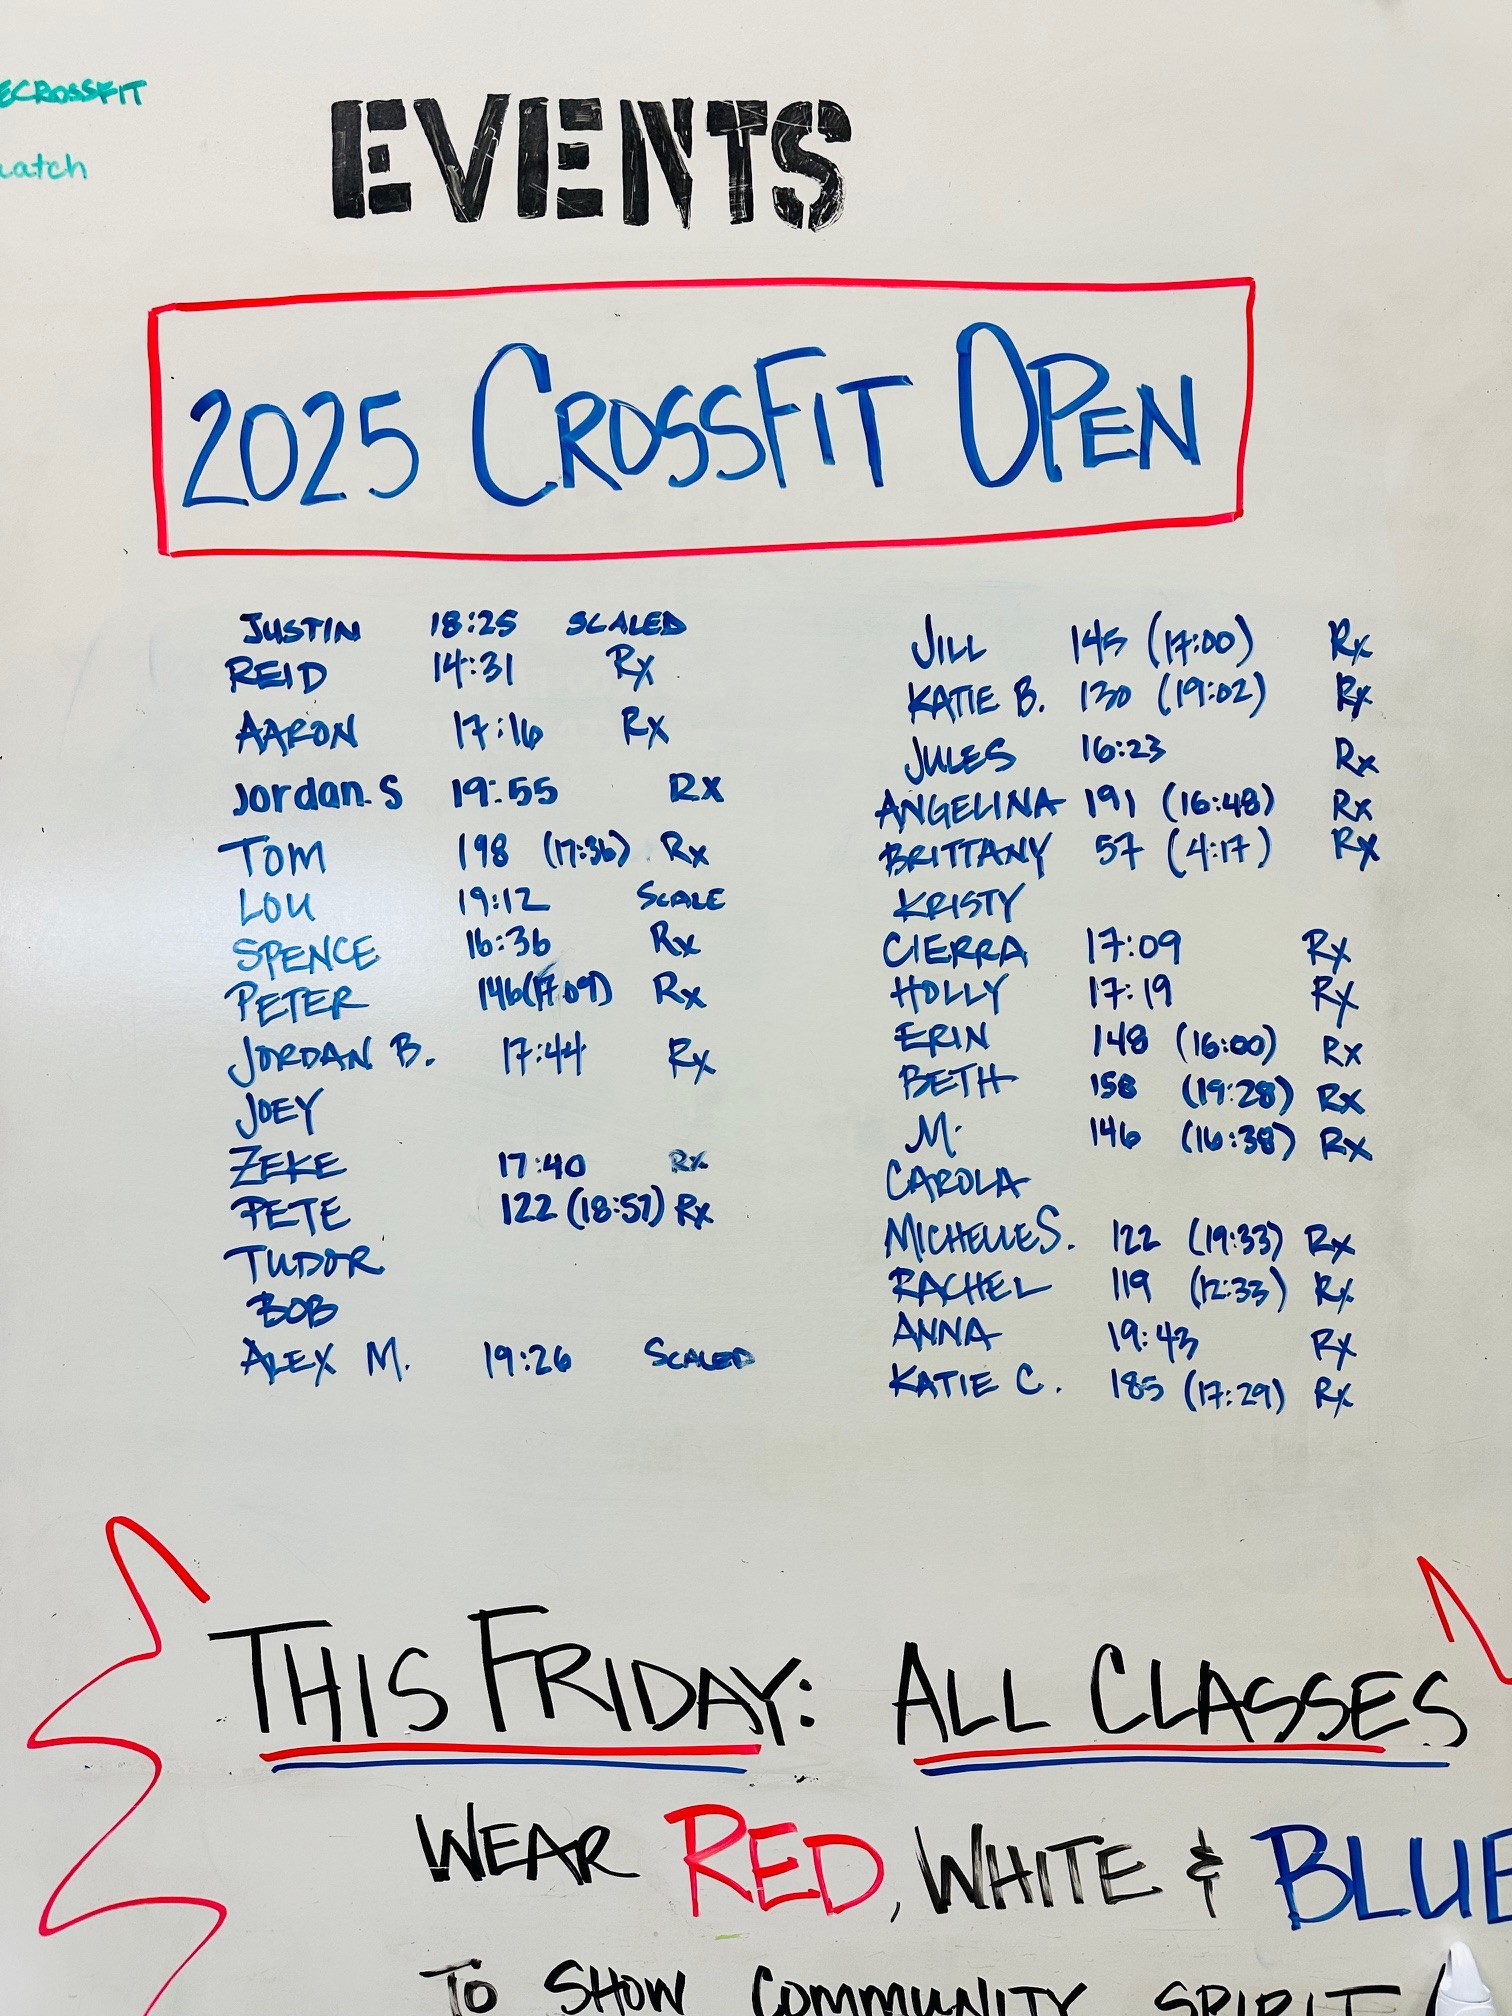 ECROSSFIT
atch
EVENTS
2025 CROSSFIT OPEN
JUSTIN 18:25 SCALED
REID 14:31 Rx
AARON 17:16 Rx
Jordan.S 19:55 Rx
TOM 198 (17:36) Rx
LOU 19:12 SCALE
SPENCE 16:36 Rx
PETER 146 (17:09) Rx
JORDAN B. 17:44 Rx
JOEY
ZEKE 17:40 Rx
PETE 122 (18:57) Rx
TUDOR
BOB
ALEX M. 19:26 SCALED
JILL 145 (17:00) Rx
KATIE B. 130 (19:02) Rx
JULES 16:23 Rx
ANGELINA 191 (16:48) Rx
BRITTANY 57 (4:17) Rx
KRISTY
CIERRA 17:09 Rx
HOLLY 17:19 Rx
ERIN 148 (16:00) Rx
BETH 158 (19:28) Rx
M. 146 (16:38) Rx
CAROLA
MICHELLE S. 122 (19:33) Rx
RACHEL 119 (12:33) Rx
ANNA 19:43 Rx
KATIE C. 185 (17:29) Rx
THIS FRIDAY: ALL CLASSES
WEAR RED, WHITE & BLUE
TO SHOW COMMUNITY SPIRIT!